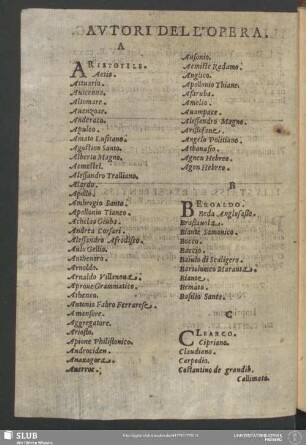 AVTORI DELL'OPERA.
A
ARISTOTELE.
Aetio.
Attuario.
Auicenna.
Altomare.
Auenzoar.
Anderaco.
Apuleo.
Amato Lusitano.
Agostino Santo.
Alberto Magno.
Aemellel.
Alessandro Tralliano.
Alardo.
Apollo.
Ambrogio Santo.
Apollonio Tianeo.
Achelao
Andrea Corsari.
Alessandro Afrodiseo.
Aulo Gellio.
Antheniro.
Arnoldo.
Arnaldo Villenoua.
Aproue Grammatico.
Atheneo.
Antonio Fabro Ferrarese.
Amansore.
Aggregatore.
Ariosto.
Apione Philistonico.
Androcideu.
Anaxagora.
Auerroe.
Ausonio.
Aemilte Radamo.
Anglico.
Apollonio Thiane.
Afaruba.
Amelio.
Auampace.
Alessandro Magno.
Aristofane.
Angelo Politiano.
Athanasio.
Agnen Hebreo.
Agon Hebreo.
B
BEROALDO.
Beda
Brasauola.
Biante Samonico.
Bocco.
Baccio.
Baiulo di Scaligero.
Bartolomeo Maranta.
Biante.
Bemato.
Basilio Santo.
C
CLEARCO.
Cipriano.
Claudiano.
Carpedio.
Costantino de grandih.
Callimaco.
SLUB
Wir führen Wissen.